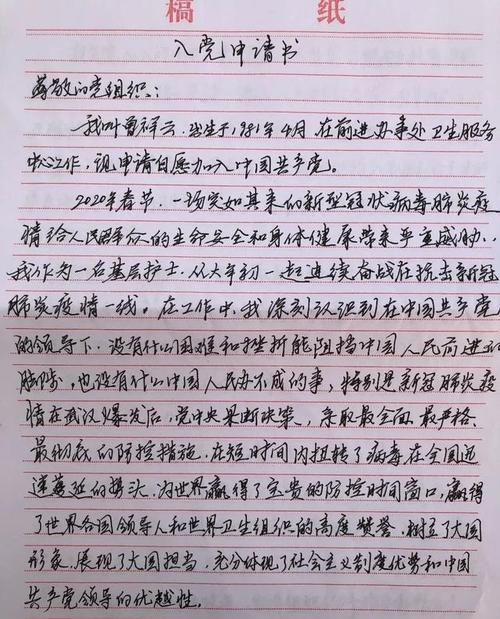 稿 纸
入党申请书
尊敬的党组织：
我叫曾祥云，出生于1981年4月，在前进办事处卫生服务
中心工作，现申请自愿加入中国共产党。
2020年春节，一场突如其来的新型冠状病毒肺炎疫
情给人民群众的生命安全和身体健康带来严重威胁，
我作为一名基层护士，从大年初一起连续奋战在抗击新冠
肺炎疫情一线。在工作中，我深刻认识到在中国共产党
的领导下，没有什么困难和挫折能阻挡中国人民前进的
脚步，也没有什么中国人民办不成的事，特别是新冠肺炎疫
情在武汉爆发后，党中央果断决策，采取最全面、最严格、
最彻底的防控措施，在短时间内扭转了病毒在全国迅
速蔓延的势头，为世界赢得了宝贵的防控时间窗口，赢得
了世界各国领导人和世界卫生组织的高度赞誉，树立了大国
形象，展现了大国担当，充分体现了社会主义制度优势和中国
共产党领导的优越性。